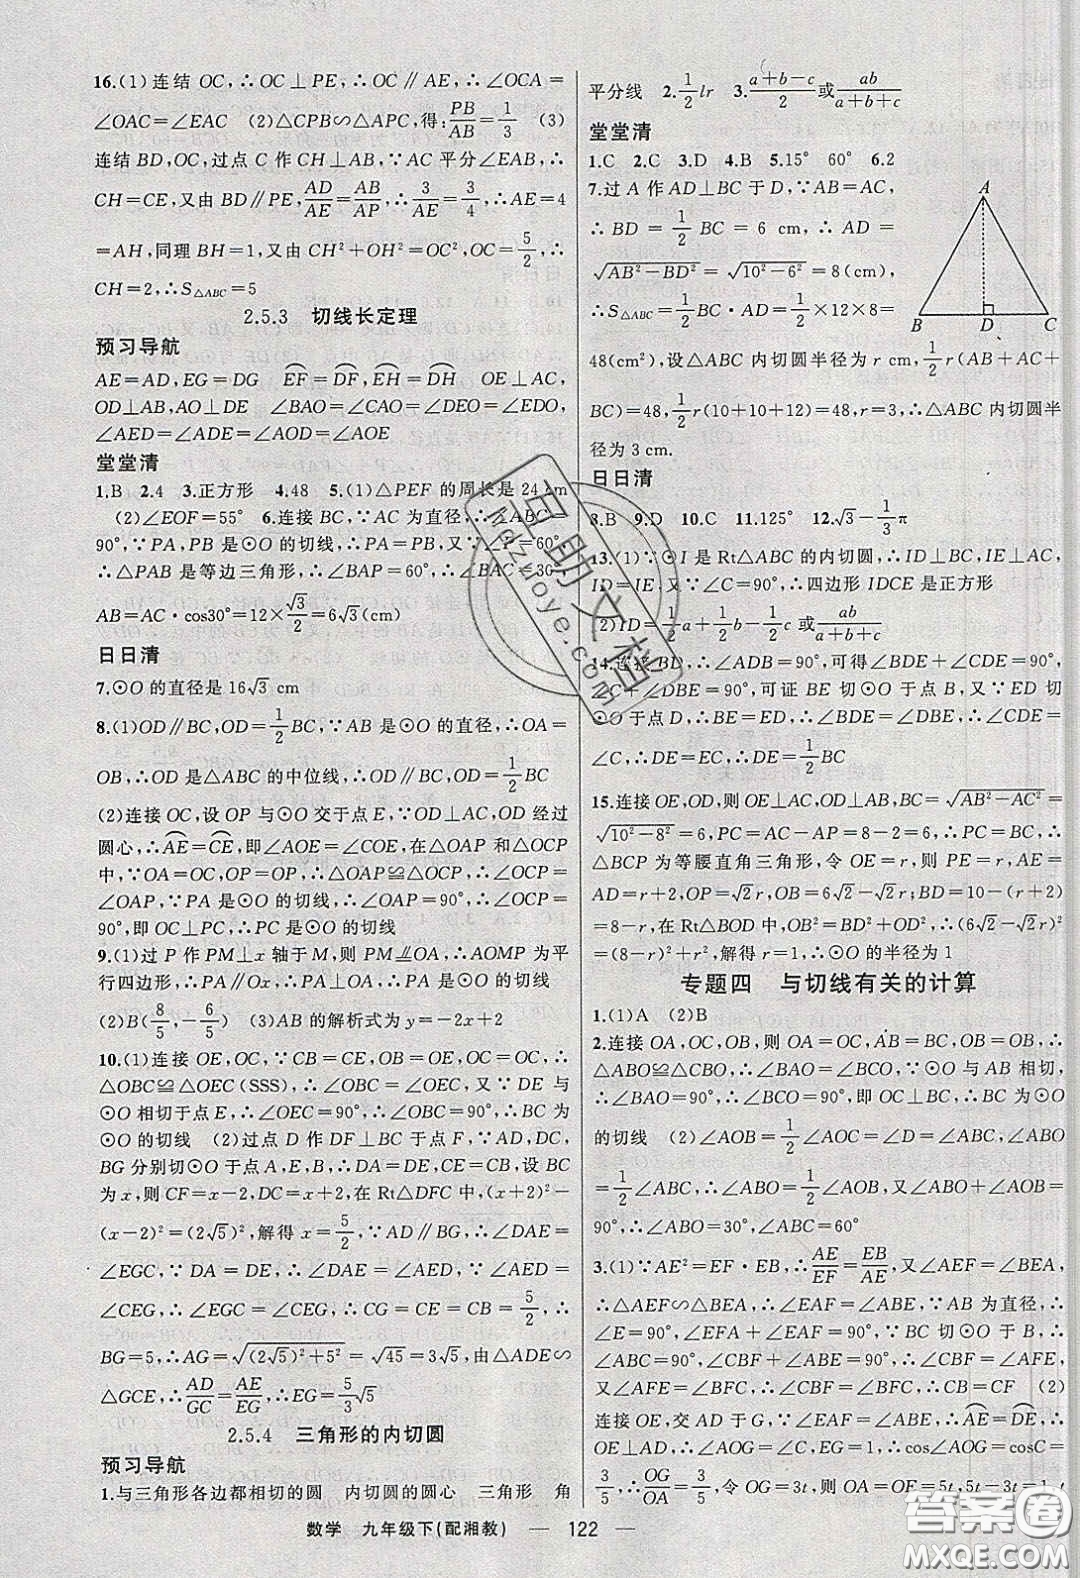 16.(1)连结OC,∴OC⊥PE,∴OC∥AE,∴∠OCA=
∠OAC=∠EAC (2)△CPB∽△APC,得:PB/AB=1/3 (3)
连结BD,OC,过点C作CH⊥AB,∵AC平分∠EAB,∴
CH=CE,又由BD∥PE,AD/AE=AB/AP,∴3/AE=3/4,∴AE=4
=AH,同理BH=1,又由CH²+OH²=OC²,OC=5/2,∴
CH=2,∴S△ABC=5
2.5.3 切线长定理
预习导航
AE=AD,EG=DG EF=DF,EH=DH OE⊥AC,
OD⊥AB,AO⊥DE ∠BAO=∠CAO=∠DEO=∠EDO,
∠AED=∠ADE=∠AOD=∠AOE
堂堂清
1.B 2.4 3.正方形 4.48 5.(1)△PEF的周长是24 cm
(2)∠EOF=55° 6.连接BC,∵AC为直径,∴∠ABC=
90°,∵PA,PB是⊙O的切线,∴PA=PB,又∵∠P=60°,
∴△PAB是等边三角形,∴∠BAP=60°,∴∠BAC=30°,
AB=AC·cos30°=12×√3/2=6√3(cm)
日日清
7.⊙O的直径是16√3 cm
8.(1)OD∥BC,OD=1/2BC,∵AB是⊙O的直径,∴OA=
OB,∴OD是△ABC的中位线,∴OD∥BC,OD=1/2BC
(2)连接OC,设OP与⊙O交于点E,∵OD⊥AC,OD经过
圆心,∴AE=CE,即∠AOE=∠COE,在△OAP和△OCP
中,∵OA=OC,OP=OP,∴△OAP≌△OCP,∴∠OCP=
∠OAP,∵PA是⊙O的切线,∴∠OAP=90°,∴∠OCP=
90°,即OC⊥PC,∴PC是⊙O的切线
9.(1)过P作PM⊥x轴于M,则PM∥OA,∴AOMP为平
行四边形,∴PA∥OM,∴PA⊥OA,∴PA是⊙O的切线
(2)B(8/5,-6/5) (3)AB的解析式为y=-2x+2
10.(1)连接OE,OC,∵CB=CE,OB=OE,OC=OC,∴
△OBC≌△OEC(SSS),∴∠OBC=∠OEC,又∵DE与
⊙O相切于点E,∴∠OEC=90°,∴∠OBC=90°,∴BC为
⊙O的切线 (2)过点D作DF⊥BC于点F,∵AD,DC,
BG分别切⊙O于点A,E,B,∴DA=DE,CE=CB,设BC
为x,则CF=x-2,DC=x+2,在Rt△DFC中,(x+2)²-
(x-2)²=(2√5)²,解得x=5/2,∵AD∥BG,∴∠DAE=
∠EGC,∵DA=DE,∴∠DAE=∠AED,∵∠AED=
∠CEG,∴∠EGC=∠CEG,∴CG=CE=CB=5/2,∴
BG=5,∴AG=√((2√5)²+5²)=√45=3√5,由△ADE∽
△GCE,∴AD/GC=AE/EG,∴EG=5/3√5
2.5.4 三角形的内切圆
预习导航
1.与三角形各边都相切的圆 内切圆的圆心 三角形 角
平分线 2.1/2lr 3.(a+b-c)/2或ab/(a+b+c)
堂堂清
1.C 2.C 3.D 4.B 5.15° 60° 6.2
7.过A作AD⊥BC于D,∵AB=AC,
∴BD=1/2BC=6 cm,∴AD=
√(AB²-BD²)=√(10²-6²)=8(cm),
∴S△ABC=1/2BC·AD=1/2×12×8=
A
B D C
48(cm²),设△ABC内切圆半径为r cm,1/2r(AB+AC+
BC)=48,1/2r(10+10+12)=48,r=3,∴△ABC内切圆半
径为3 cm.
日日清
8.B 9.D 10.C 11.125° 12.√3-1/3π
13.(1)∵⊙I是Rt△ABC的内切圆,∴ID⊥BC,IE⊥AC,
ID=IE,又∵∠C=90°,∴四边形IDCE是正方形
(2)ID=1/2a+1/2b-1/2c或ab/(a+b+c)
14.连接BD,∴∠ADB=90°,可得∠BDE+∠CDE=90°,
∠C+∠EBD=90°,可证BE切⊙O于点B,又∵ED切
⊙O于点D,∴BE=ED,∴∠BDE=∠DBE,∴∠CDE=
∠C,∴DE=EC,∴DE=1/2BC
15.连接OE,OD,则OE⊥AC,OD⊥AB,BC=√(AB²-AC²)=
√(10²-8²)=6,PC=AC-AP=8-2=6,∴BC=PC,∴
△BCP为等腰直角三角形,令OE=r,则PE=r,AE=
AD=r+2,OP=√2r,OB=6√2-√2r;BD=10-(r+2)
=8-r,在Rt△BOD中,OB²=BD²+OD²,∴(6√2-√2r)²
=(8-r)²+r²,解得r=1,∴⊙O的半径为1
专题四 与切线有关的计算
1.(1)A (2)B
2.连接OA,OC,OB,则OA=OC,AB=BC,OB=OB,∴
△ABO≌△CBO,∴∠BAO=∠BCO,∵⊙O与AB相切,
∴∠BAO=90°,∴∠BCO=90°,即OC⊥BC,∴BC为⊙O
的切线 (2)∠AOB=1/2∠AOC=∠D=∠ABC,∠ABO
=1/2∠ABC,∴∠ABO=1/2∠AOB,又∠ABO+∠AOB=
90°,∴∠ABO=30°,∠ABC=60°
3.(1)∵AE²=EF·EB,∴AE/EF=EB/AE,又∠AEF=∠BEA,
∴△AEF∽△BEA,∴∠EAF=∠ABE,∵AB为直径,∴
∠E=90°,∠EFA+∠EAF=90°,∵BC切⊙O于B,∴
∠ABC=90°,∠CBF+∠ABE=90°,∴∠CBF=∠AFE,
又∠AFE=∠BFC,∴∠CBF=∠BFC,∴CB=CF (2)
连接OE,交AD于G,∵∠ABE=∠EAF,∴AE=DE,∴
OE⊥AD,∴OE∥BC,∴∠AOG=∠C,∴cos∠AOG=cosC=
3/5,∴OG/OA=3/5,∴令OG=3t,OA=OE=5t,5t-3t=
数学 九年级下(配湘教) — 122 —
答案圈
MXQE.COM